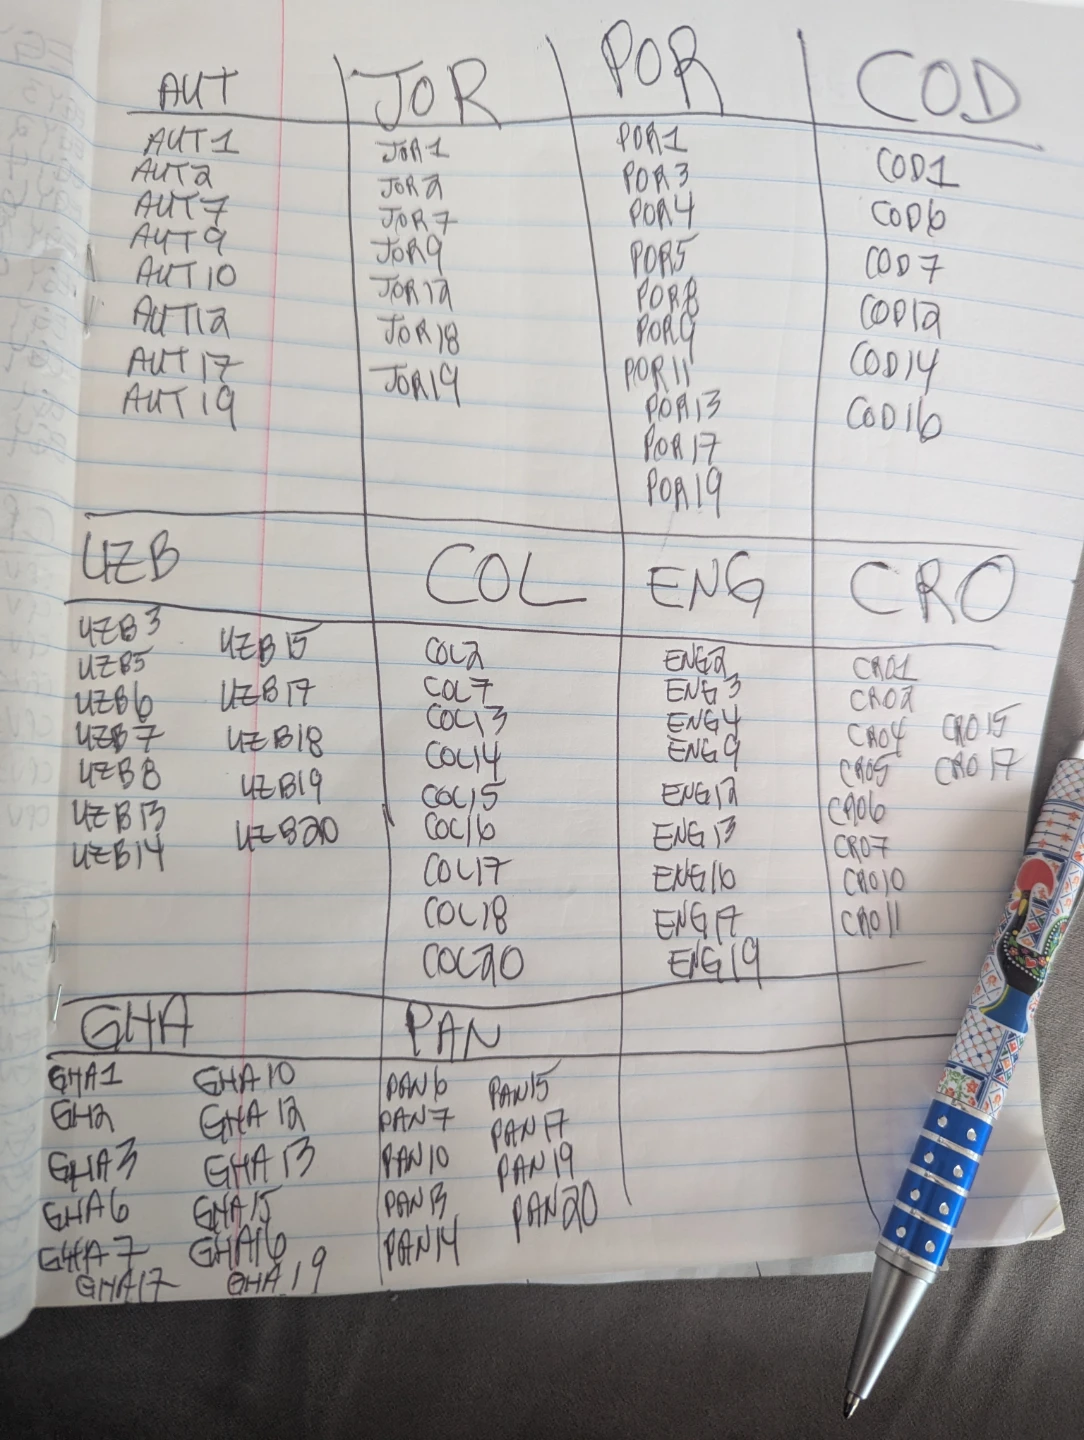 AUT
AUT1
AUT2
AUT7
AUT9
AUT10
AUT12
AUT17
AUT19
JOR
JOR1
JOR2
JOR7
JOR9
JOR12
JOR18
JOR19
POR
POR1
POR3
POR4
POR5
POR8
POR9
POR11
POR13
POR17
POR19
COD
COD1
COD6
COD7
COD12
COD14
COD16
UZB
UZB3
UZB5
UZB6
UZB7
UZB8
UZB13
UZB14
UZB15
UZB17
UZB18
UZB19
UZB20
COL
COL2
COL7
COL13
COL14
COL15
COL16
COL17
COL18
COL20
ENG
ENG2
ENG3
ENG4
ENG9
ENG12
ENG13
ENG16
ENG17
ENG19
CRO
CRO1
CRO2
CRO4
CRO5
CRO6
CRO7
CRO10
CRO11
CRO15
CRO17
GHA
GHA1
GH2
GHA3
GHA6
GHA7
GHA10
GHA12
GHA13
GHA15
GHA16
GHA17
GHA19
PAN
PAN6
PAN7
PAN10
PAN13
PAN14
PAN15
PAN17
PAN19
PAN20